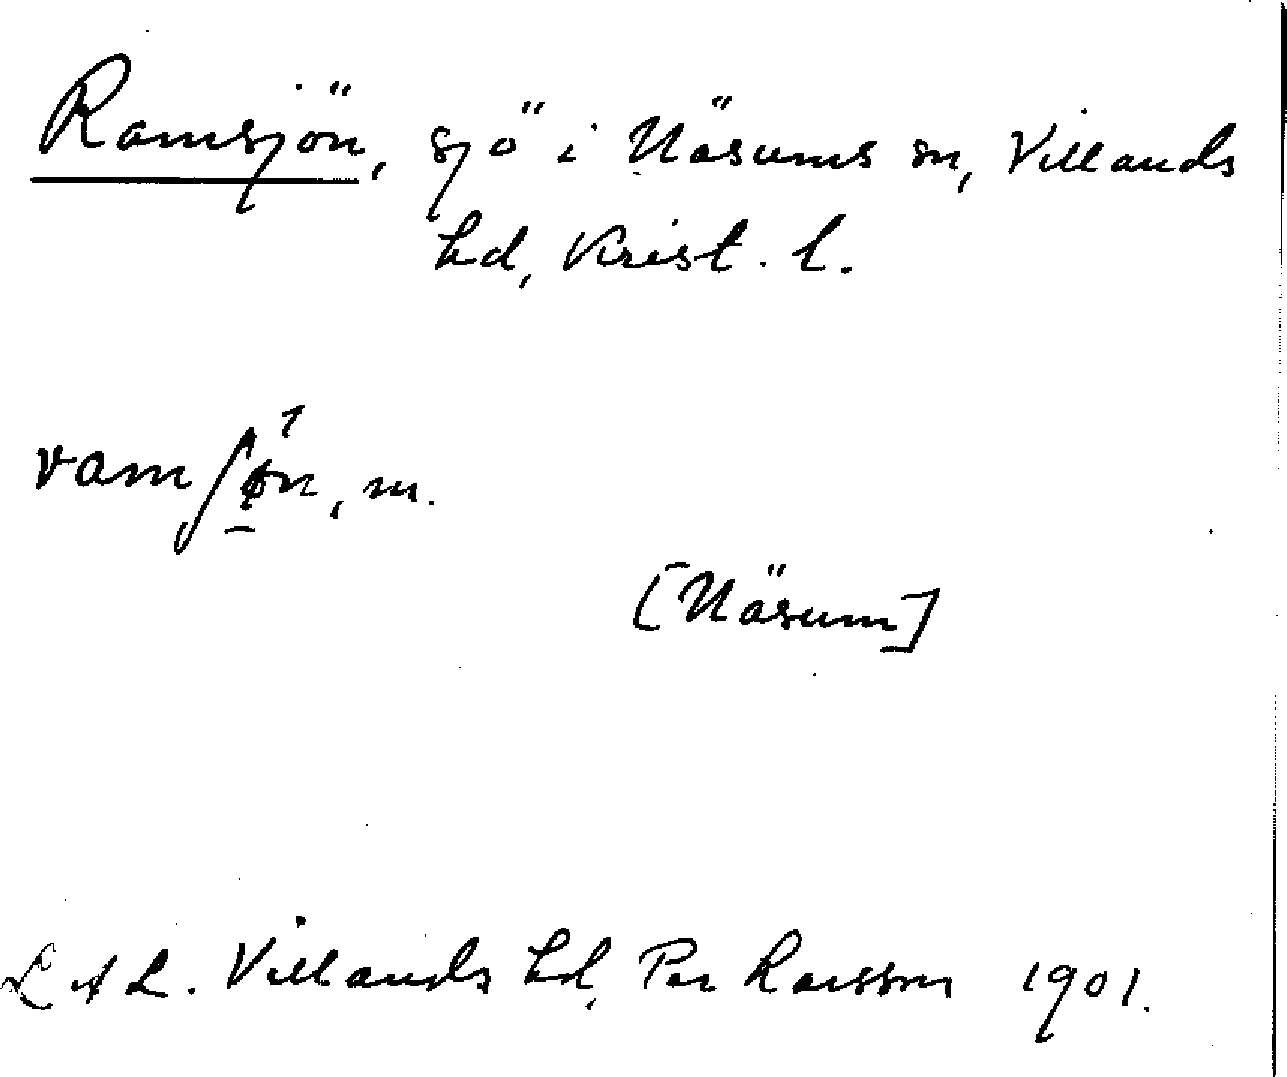 Ramsjön, sjö i Näsums sn, Villands
hd, Krist. l.
ramʃøn, m.
[Näsum]
LAL. Villands hd, Per Larsson 1901.